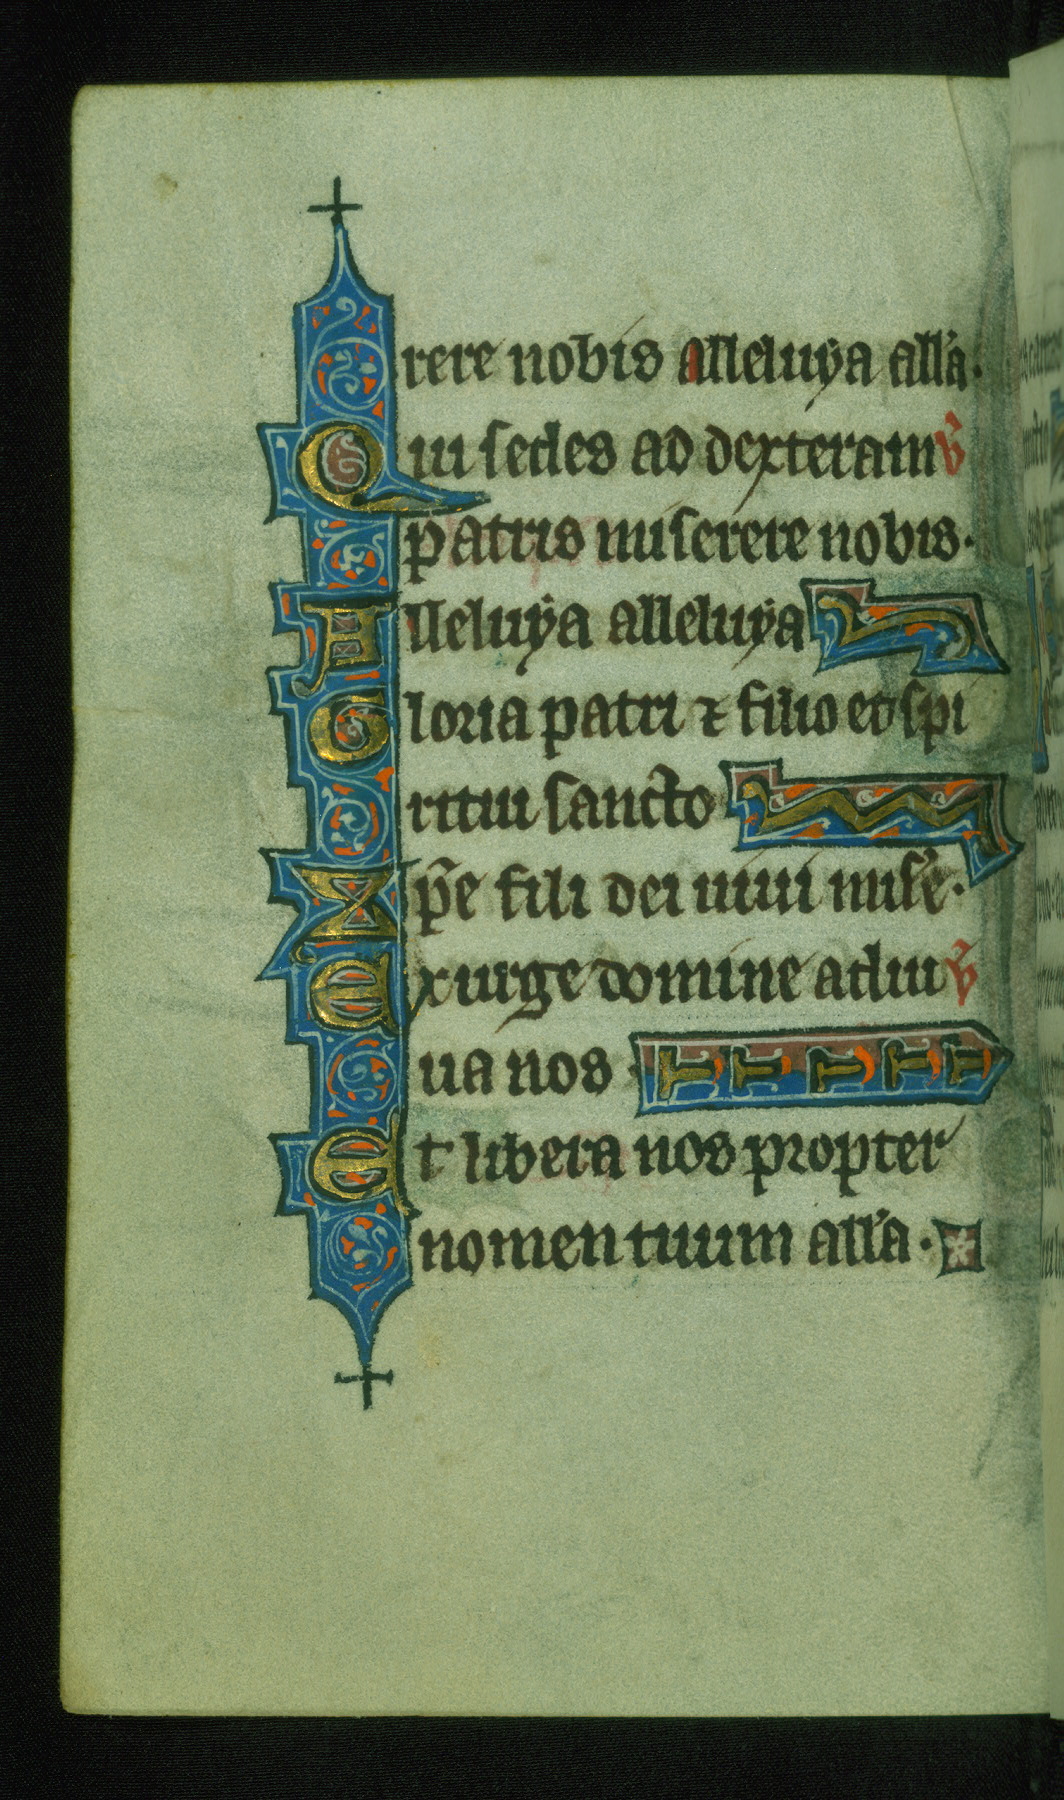 rere nobis alleluÿa all'a.
Qui sedes ad dexteram v̄
patris miserere nobis.
Alleluÿa alleluÿa
Gloria patri ⁊ filio et spi
ritui sancto
Xp̄e fili dei uiui mise᷒.
Exurge domine adiu v̄
ua nos
Et libera nos propter
nomen tuum all'a.